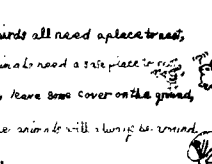 birds all need a place to nest,
animals need a safe place to rest
leave some cover on the ground,
animals will always be around